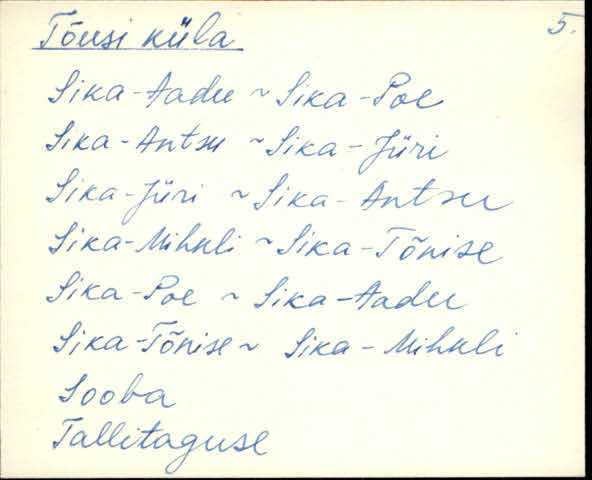 Tõusi küla 5.
Sika-Aadu ~ Sika-Poe
Sika-Antsu ~ Sika-Jüri
Sika-Jüri ~ Sika-Antsu
Sika-Mihkli ~ Sika-Tõnise
Sika-Poe ~ Sika-Aadu
Sika-Tõnise ~ Sika-Mihkli
Sooba
Tallitaguse